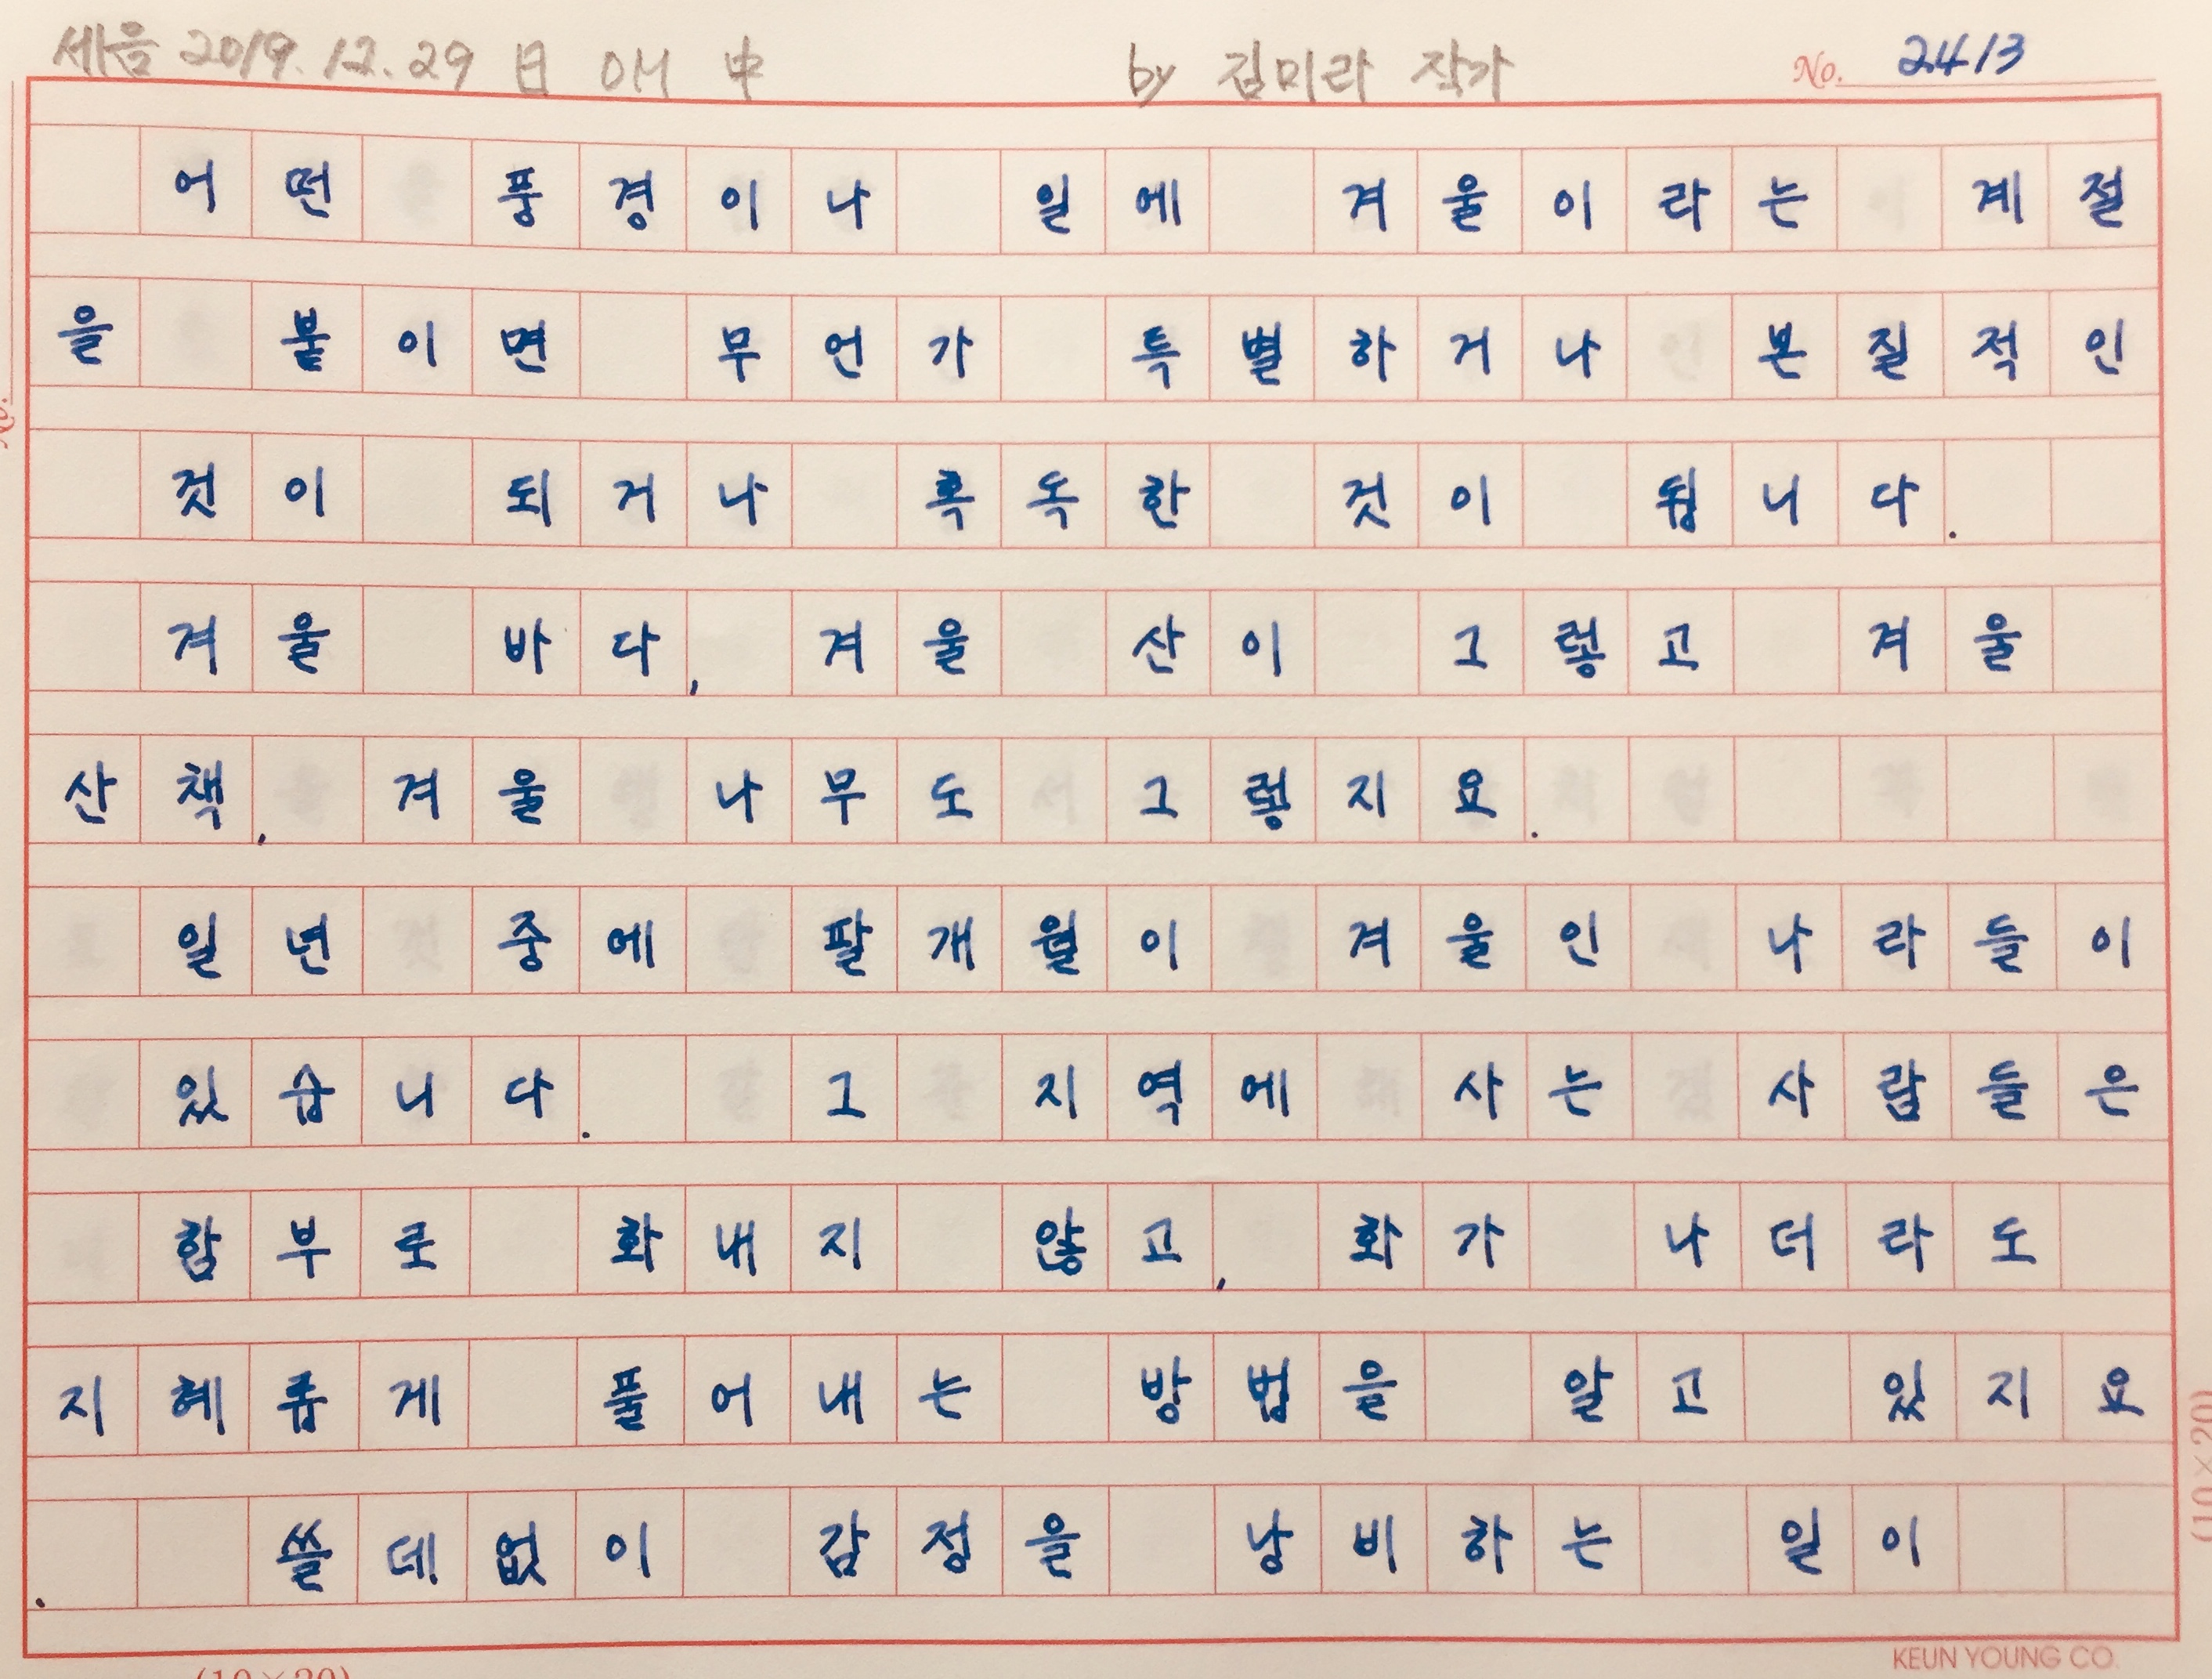 세음 2019. 12. 29 日 OM 中 by 김미라 작가 No. 2413
어떤 풍경이나 일에 겨울이라는 계절
을 붙이면 무언가 특별하거나 본질적인
것이 되거나 혹독한 것이 됩니다.
겨울 바다, 겨울 산이 그렇고 겨울
산책, 겨울 나무도 그렇지요.
일년 중에 팔개월이 겨울인 나라들이
있습니다. 그 지역에 사는 사람들은
함부로 화내지 않고, 화가 나더라도
지혜롭게 풀어내는 방법을 알고 있지요
. 쓸데없이 감정을 낭비하는 일이
KEUN YOUNG CO.
(10×20)
(10×20)
No.